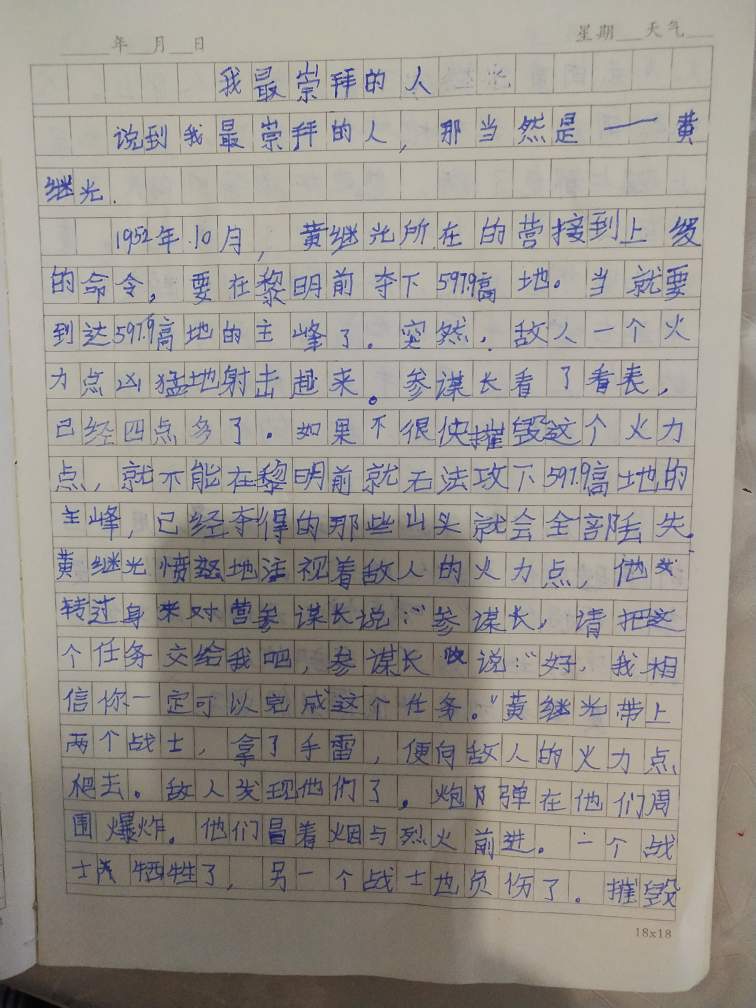 年 月 日 星期 天气
我最崇拜的人
说到我最崇拜的人，那当然是——黄
继光.
1952年.10月，黄继光所在的营接到上级
的命令，要在黎明前夺下597.9高地。当就要
到达597.9高地的主峰了。突然，敌人一个火
力点凶猛地射击起来。参谋长看了看表，
已经四点多了。如果不很快摧毁这个火力
点，就不能在黎明前就无法攻下597.9高地的
主峰，已经夺得的那些山头就会全部丢失。
黄继光愤怒地注视着敌人的火力点，他
转过身来对营参谋长说："参谋长，请把这
个任务交给我吧，参谋长 说："好，我相
信你一定可以完成这个任务。"黄继光带上
两个战士，拿了手雷，便向敌人的火力点
爬去。敌人发现他们了。炮 弹在他们周
围爆炸。他们冒着烟与烈火前进。一个战
士 牺牲了，另一个战士也负伤了。摧毁
18x18